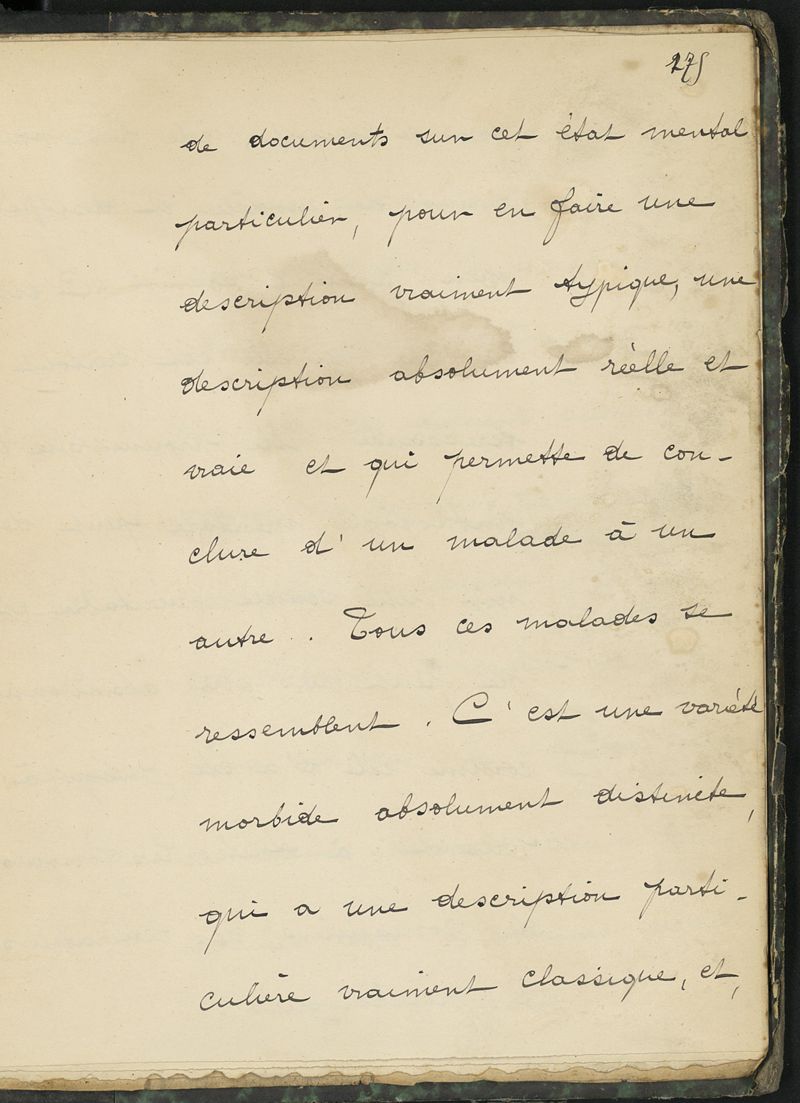 275
de documents sur cet état mental
particulier, pour en faire une
description vraiment typique, une
description absolument réelle et
vraie et qui permette de con-
clure d'un malade à un
autre. Tous ces malades se
ressemblent. C'est une variété
morbide absolument distincte,
qui a une description parti-
culière vraiment classique, et,